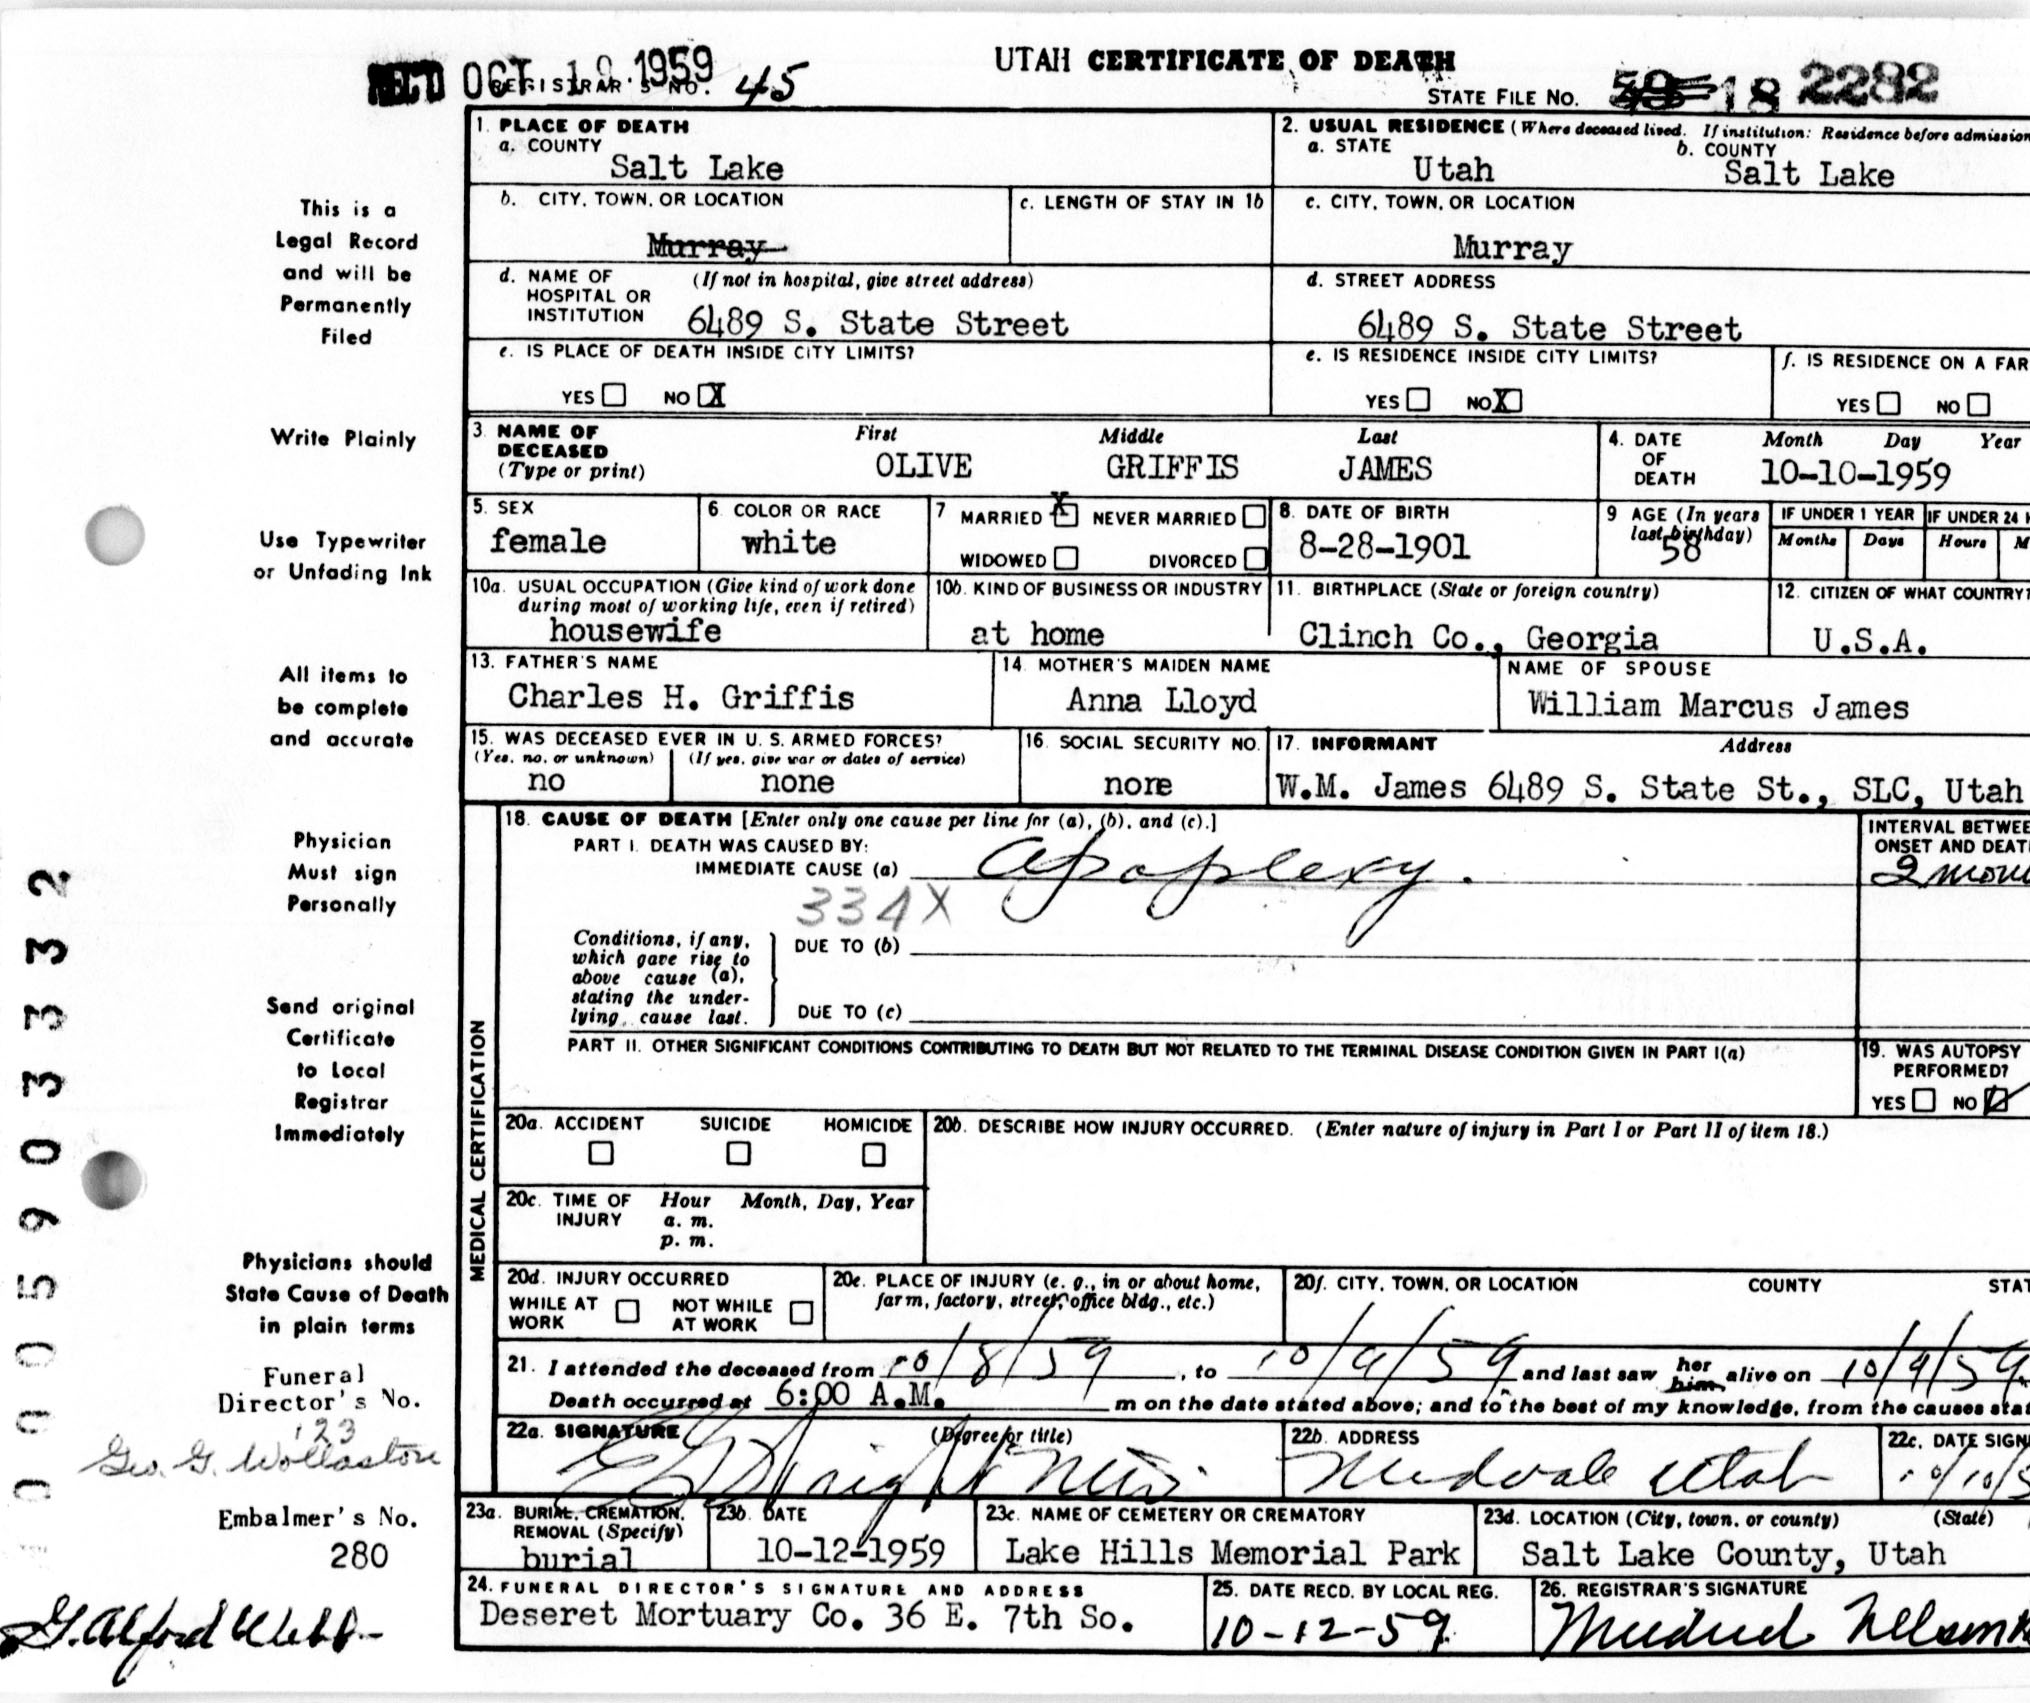 UTAH CERTIFICATE OF DEATH
REC'D OCT 19 1959
REGISTRAR'S NO. 45
STATE FILE No. 18 2282
1. PLACE OF DEATH
a. COUNTY
Salt Lake
2. USUAL RESIDENCE (Where deceased lived. If institution: Residence before admission
a. STATE
Utah
b. COUNTY
Salt Lake
b. CITY, TOWN, OR LOCATION
Murray
c. LENGTH OF STAY IN 1b
c. CITY, TOWN, OR LOCATION
Murray
d. NAME OF HOSPITAL OR INSTITUTION
(If not in hospital, give street address)
6489 S. State Street
d. STREET ADDRESS
6489 S. State Street
e. IS PLACE OF DEATH INSIDE CITY LIMITS?
YES NO X
e. IS RESIDENCE INSIDE CITY LIMITS?
YES NO X
f. IS RESIDENCE ON A FAR
YES NO
3. NAME OF DECEASED
(Type or print)
First Middle Last
OLIVE GRIFFIS JAMES
4. DATE OF DEATH
Month Day Year
10-10-1959
5. SEX
female
6. COLOR OR RACE
white
7 MARRIED X NEVER MARRIED
WIDOWED DIVORCED
8. DATE OF BIRTH
8-28-1901
9 AGE (In years last birthday)
58
IF UNDER 1 YEAR
Months Days
IF UNDER 24 H
Hours M
10a. USUAL OCCUPATION (Give kind of work done during most of working life, even if retired)
housewife
10b. KIND OF BUSINESS OR INDUSTRY
at home
11. BIRTHPLACE (State or foreign country)
Clinch Co., Georgia
12. CITIZEN OF WHAT COUNTRY?
U.S.A.
13. FATHER'S NAME
Charles H. Griffis
14. MOTHER'S MAIDEN NAME
Anna Lloyd
NAME OF SPOUSE
William Marcus James
15. WAS DECEASED EVER IN U. S. ARMED FORCES?
(Yes, no, or unknown) (If yes, give war or dates of service)
no none
16. SOCIAL SECURITY NO.
none
17. INFORMANT Address
W.M. James 6489 S. State St., SLC, Utah
MEDICAL CERTIFICATION
18. CAUSE OF DEATH [Enter only one cause per line for (a), (b), and (c).]
PART I. DEATH WAS CAUSED BY:
IMMEDIATE CAUSE (a) Apoplexy.
334X
INTERVAL BETWEE
ONSET AND DEATH
Conditions, if any, which gave rise to above cause (a), stating the underlying cause last.
DUE TO (b)
DUE TO (c)
PART II. OTHER SIGNIFICANT CONDITIONS CONTRIBUTING TO DEATH BUT NOT RELATED TO THE TERMINAL DISEASE CONDITION GIVEN IN PART I(a)
19. WAS AUTOPSY PERFORMED?
YES NO
20a. ACCIDENT SUICIDE HOMICIDE
20b. DESCRIBE HOW INJURY OCCURRED. (Enter nature of injury in Part I or Part II of item 18.)
20c. TIME OF INJURY
Hour Month, Day, Year
a. m.
p. m.
20d. INJURY OCCURRED
WHILE AT WORK NOT WHILE AT WORK
20e. PLACE OF INJURY (e. g., in or about home, farm, factory, street, office bldg., etc.)
20f. CITY, TOWN, OR LOCATION COUNTY STAT
21. I attended the deceased from 10/8/59, to 10/9/59 and last saw her him alive on 10/9/59.
Death occurred at 6:00 A.M. m on the date stated above; and to the best of my knowledge, from the causes stat
22a. SIGNATURE (Degree or title)
22b. ADDRESS
Midvale Utah
22c. DATE SIGN
10/10/5
23a. BURIAL, CREMATION, REMOVAL (Specify)
burial
23b. DATE
10-12-1959
23c. NAME OF CEMETERY OR CREMATORY
Lake Hills Memorial Park
23d. LOCATION (City, town, or county) (State)
Salt Lake County, Utah
24. FUNERAL DIRECTOR'S SIGNATURE AND ADDRESS
Deseret Mortuary Co. 36 E. 7th So.
25. DATE RECD. BY LOCAL REG.
10-12-59
26. REGISTRAR'S SIGNATURE
This is a
Legal Record
and will be
Permanently
Filed
Write Plainly
Use Typewriter
or Unfading Ink
All items to
be complete
and accurate
Physician
Must sign
Personally
Send original
Certificate
to Local
Registrar
Immediately
Physicians should
State Cause of Death
in plain terms
Funeral
Director's No.
123
Geo. G. Wollaston
Embalmer's No.
280
G. Alford Webb
0005903332